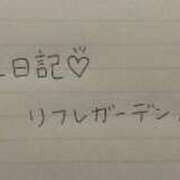 日記♡
リフレガーデン